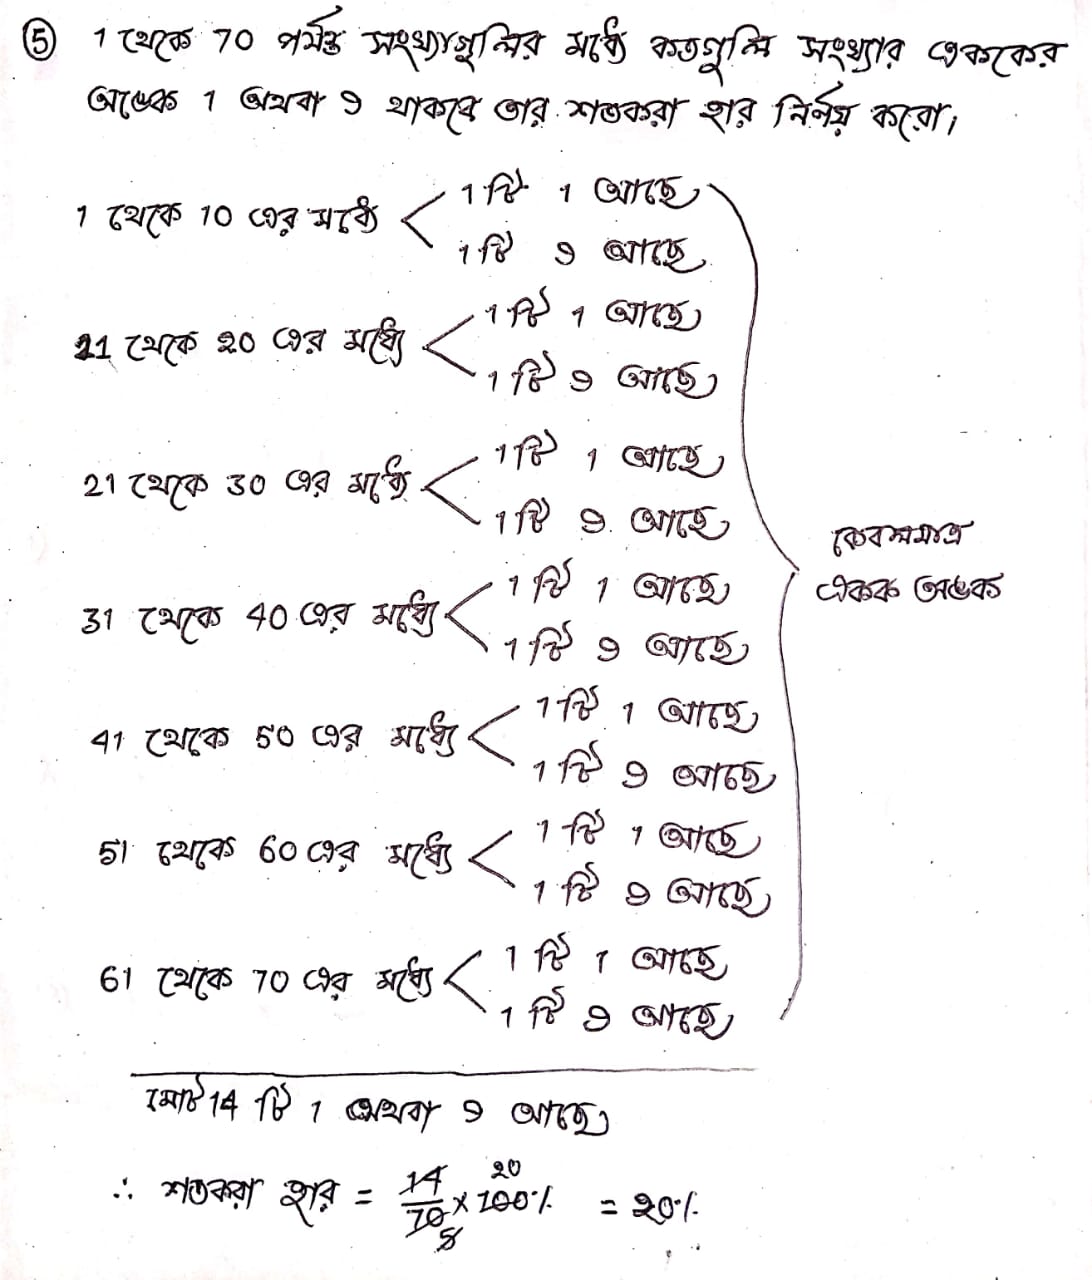 ⑤ 1 থেকে 70 পর্যন্ত সংখ্যাগুলির মধ্যে কতগুলি সংখ্যার এককের
অঙ্কে 1 অথবা 9 থাকবে তার শতকরা হার নির্নয় করো।
1 থেকে 10 এর মধ্যে < 1 টি 1 আছে
1 টি 9 আছে
11 থেকে 20 এর মধ্যে < 1 টি 1 আছে
1 টি 9 আছে
21 থেকে 30 এর মধ্যে < 1 টি 1 আছে
1 টি 9 আছে
কেবলমাত্র
একক অঙ্ক
31 থেকে 40 এর মধ্যে < 1 টি 1 আছে
1 টি 9 আছে
41 থেকে 50 এর মধ্যে < 1 টি 1 আছে
1 টি 9 আছে
51 থেকে 60 এর মধ্যে < 1 টি 1 আছে
1 টি 9 আছে
61 থেকে 70 এর মধ্যে < 1 টি 1 আছে
1 টি 9 আছে
মোট 14 টি 1 অথবা 9 আছে
∴ শতকরা হার = 14/70 × 100% = 20%
20
5